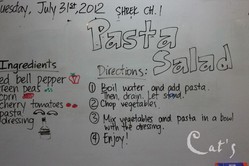 Tuesday, July 31st, 2012
Pasta
Salad
Ingredients
red bell pepper
green peas
corn
cherry tomatoes
pasta
dressing
Directions:
1 Boil water and add pasta.
Then, drain. Let stand.
2 Chop vegetables.
3 Mix vegetables and pasta in a bowl
with the dressing.
4 Enjoy!
Cat's